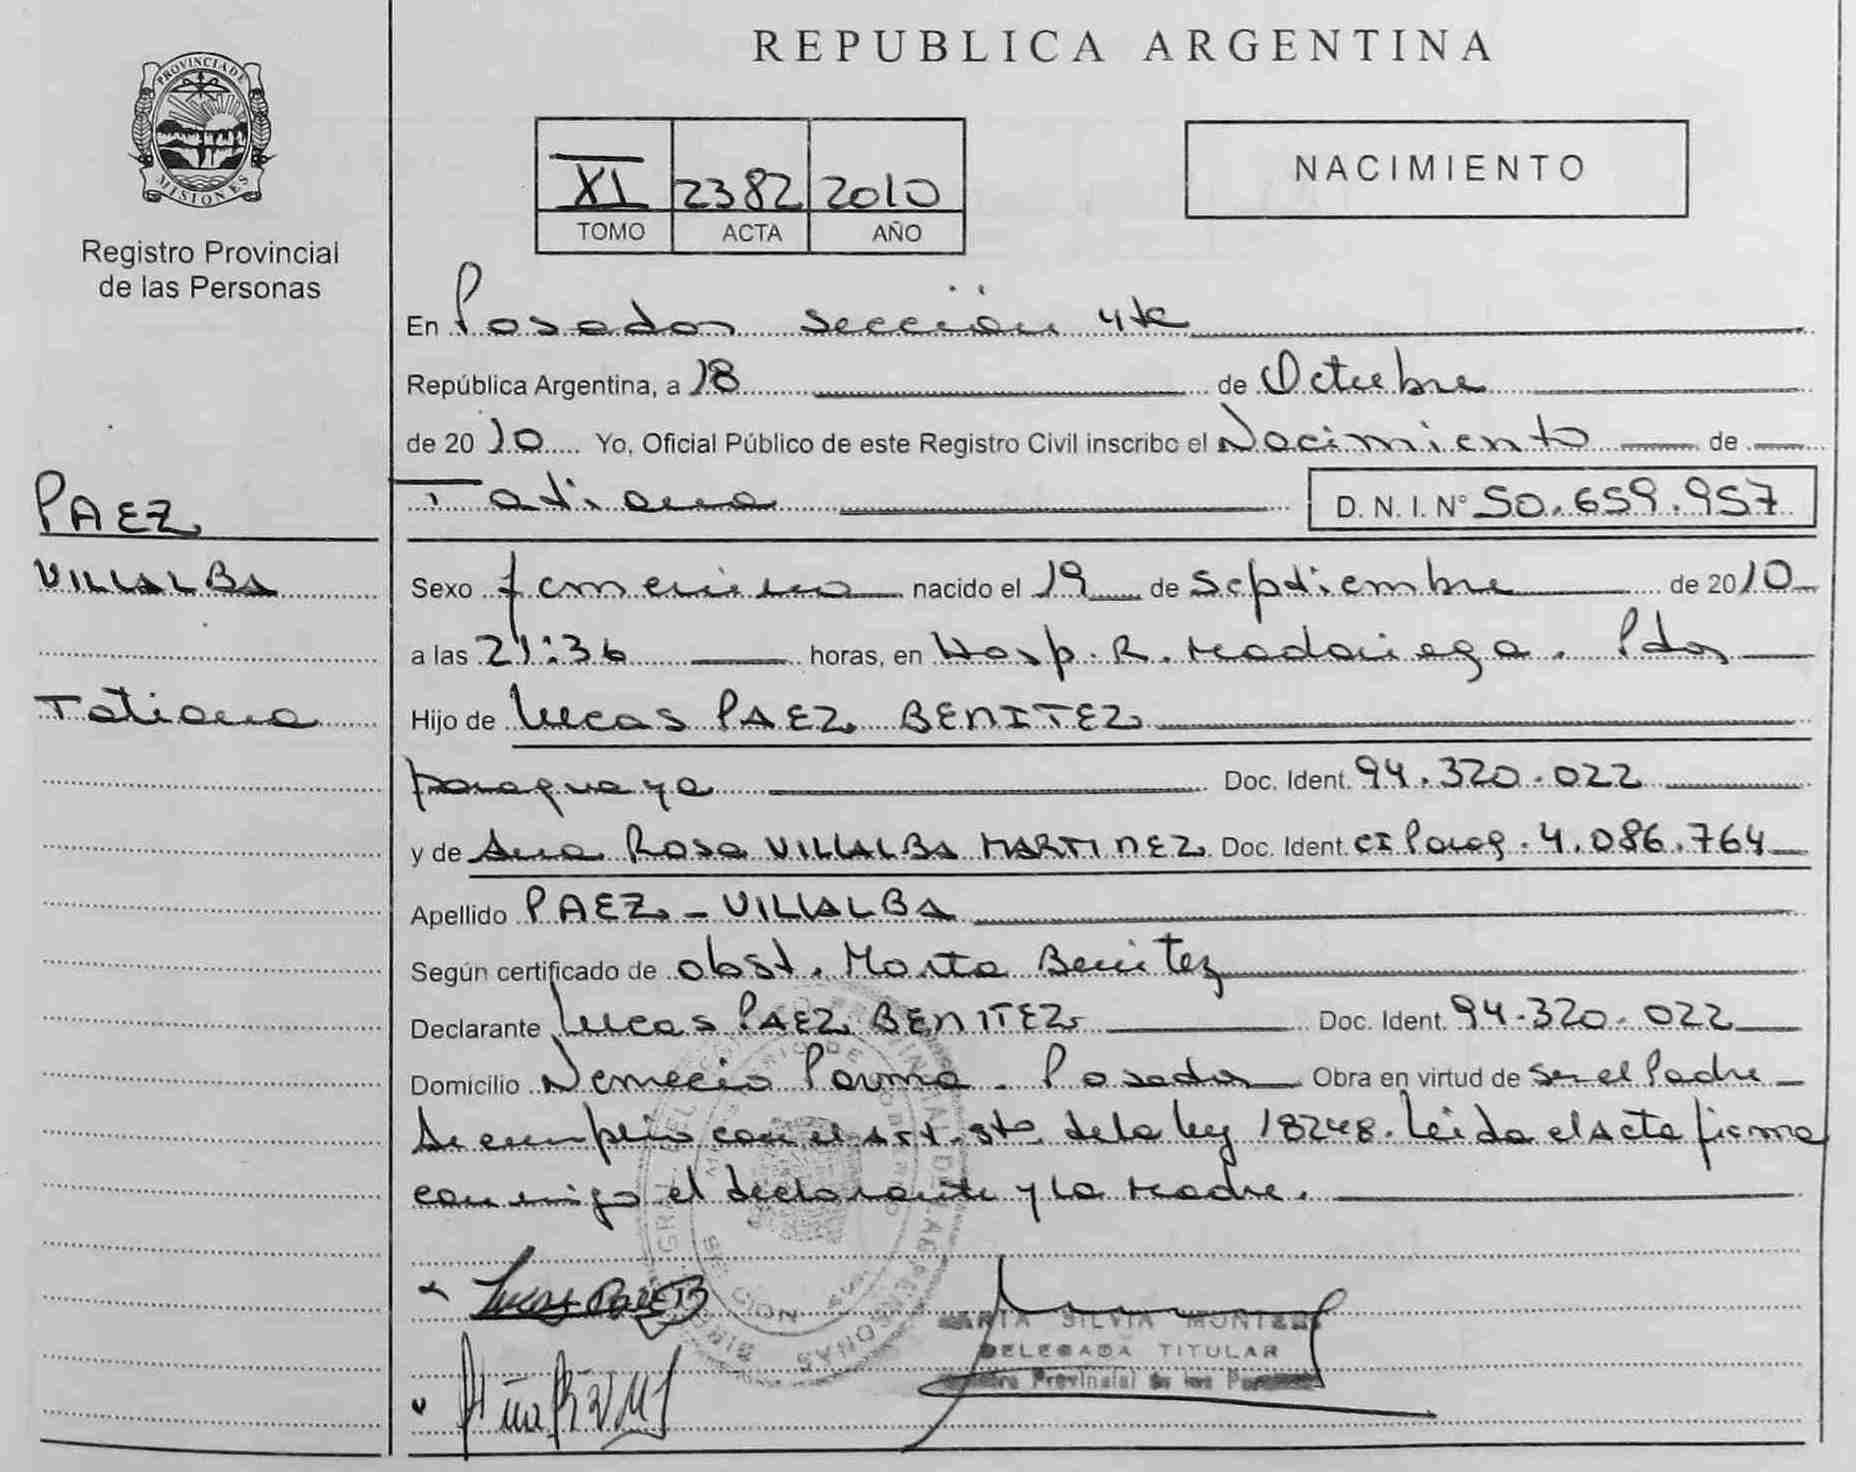 REPUBLICA ARGENTINA
PROVINCIA DE
MISIONES
Registro Provincial
de las Personas
XI 2382 2010
TOMO ACTA AÑO
NACIMIENTO
En Posadas Sección 4ta
República Argentina, a 18 de Octubre
de 2010 Yo, Oficial Público de este Registro Civil inscribo el Nacimiento de
Tatiana D. N. I. Nº 50.659.957
PAEZ
VILLALBA
Tatiana
Sexo femenino nacido el 19 de Septiembre de 2010
a las 21:36 horas, en Hosp. R. Madariaga. Pdas
Hijo de Lucas PAEZ BENITEZ
paraguaya Doc. Ident. 94.320.022
y de Ana Rosa VILLALBA MARTINEZ Doc. Ident. CI Parag. 4.086.764
Apellido PAEZ - VILLALBA
Según certificado de obst. Marta Benitez
Declarante Lucas PAEZ BENITEZ Doc. Ident. 94.320.022
Domicilio Nemecio Parma - Posadas Obra en virtud de Ser el Padre
Se cumplio con el Art. de la ley 18248. Leida el Acta firma
conmigo el declarante y la Madre.
MARIA SILVIA
DELEGADA TITULAR
Provincial de las